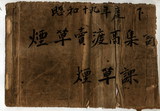 昭和十九年度 下
煙草賣渡高集
煙草課